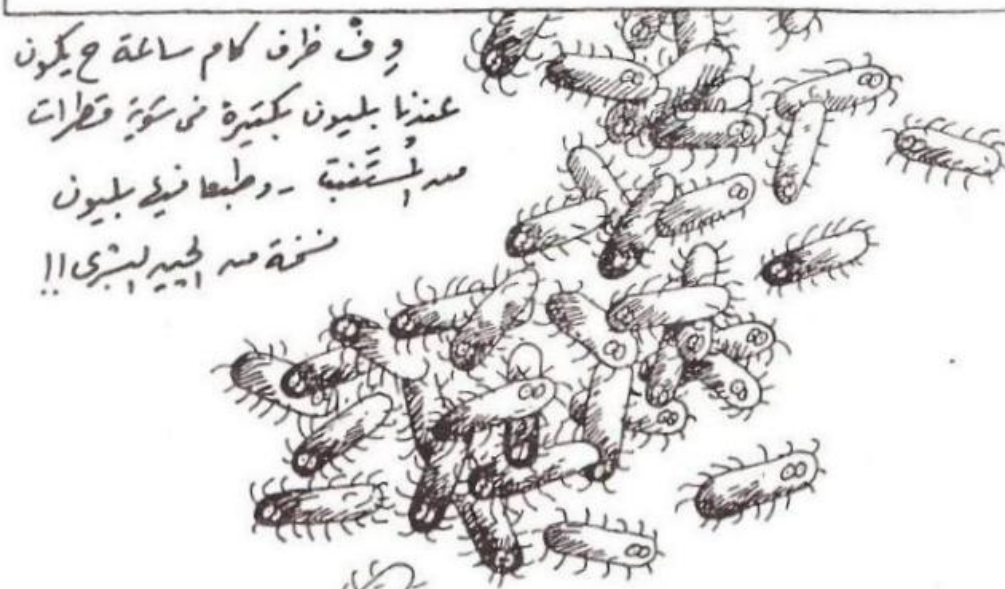 وِفْ ظرف كام ساعة ح يكون
عندنا بليون بكتيرة فى شَوية قطرات
من المُستَنبَت - وطبعا فيها بليون
نسخة من الجين البشرى!!